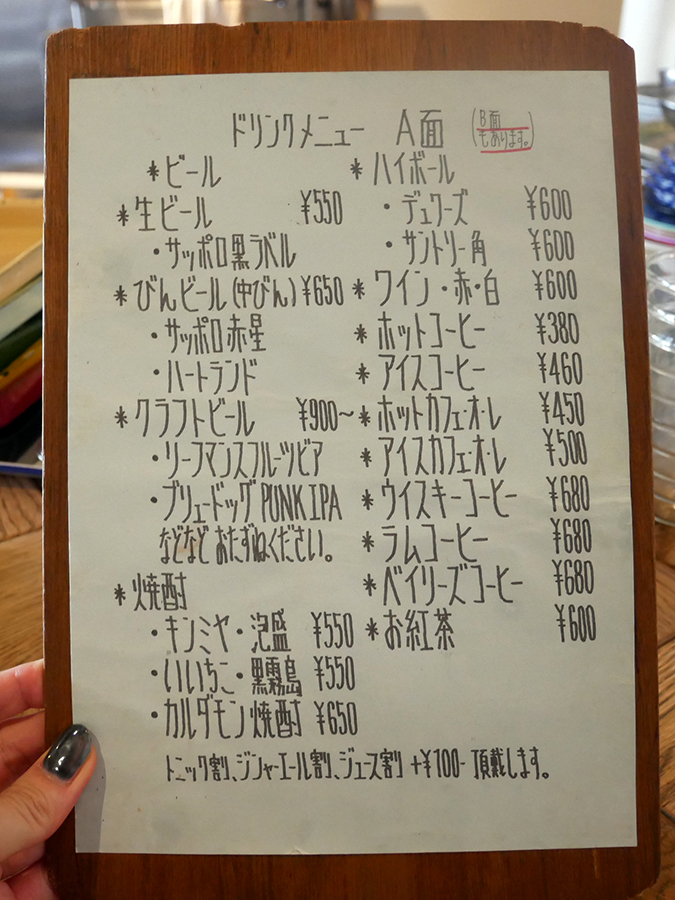 ドリンクメニュー A面 (B面もあります。)
*ビール
*生ビール ¥550
・サッポロ黒ラベル
*びんビール(中びん) ¥650
・サッポロ赤星
・ハートランド
*クラフトビール ¥900〜
・リーフマンスフルーツビア
・ブリュードッグ PUNK IPA
などなど おたずねください。
*焼酎
・キンミヤ・泡盛 ¥550
・いいちこ・黒霧島 ¥550
・カルダモン焼酎 ¥650
*ハイボール
・デュワーズ ¥600
・サントリー角 ¥600
*ワイン・赤・白 ¥600
*ホットコーヒー ¥380
*アイスコーヒー ¥460
*ホットカフェ・オ・レ ¥450
*アイスカフェ・オ・レ ¥500
*ウイスキーコーヒー ¥680
*ラムコーヒー ¥680
*ベイリーズコーヒー ¥680
*お紅茶 ¥600
トニック割、ジンジャーエール割、ジュース割 +¥100- 頂戴します。